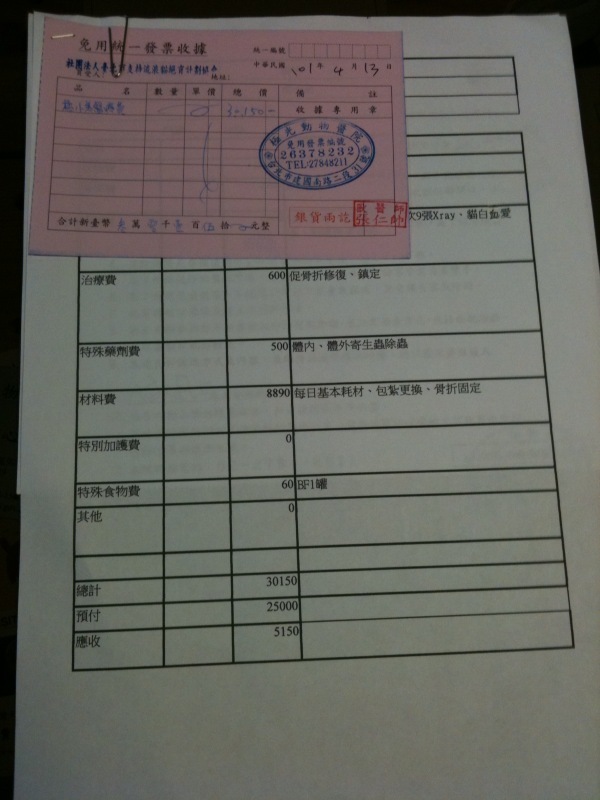 免用統一發票收據
統一編號
中華民國 101年 4月 13日
地址:
品名 數量 單價 總價 備註
30150-
收據專用章
極光動物醫院
免用發票編號
26378232
TEL:27848211
台北市建國南路二段31號
銀貨兩訖
張仁帥
合計新臺幣 萬 千 百 拾 元整
次9張Xray、貓白血愛
治療費 600 促骨折修復、鎮定
特殊藥劑費 500 體內、體外寄生蟲除蟲
材料費 8890 每日基本耗材、包紮更換、骨折固定
特別加護費 0
特殊食物費 60 BF1罐
其他 0
總計 30150
預付 25000
應收 5150